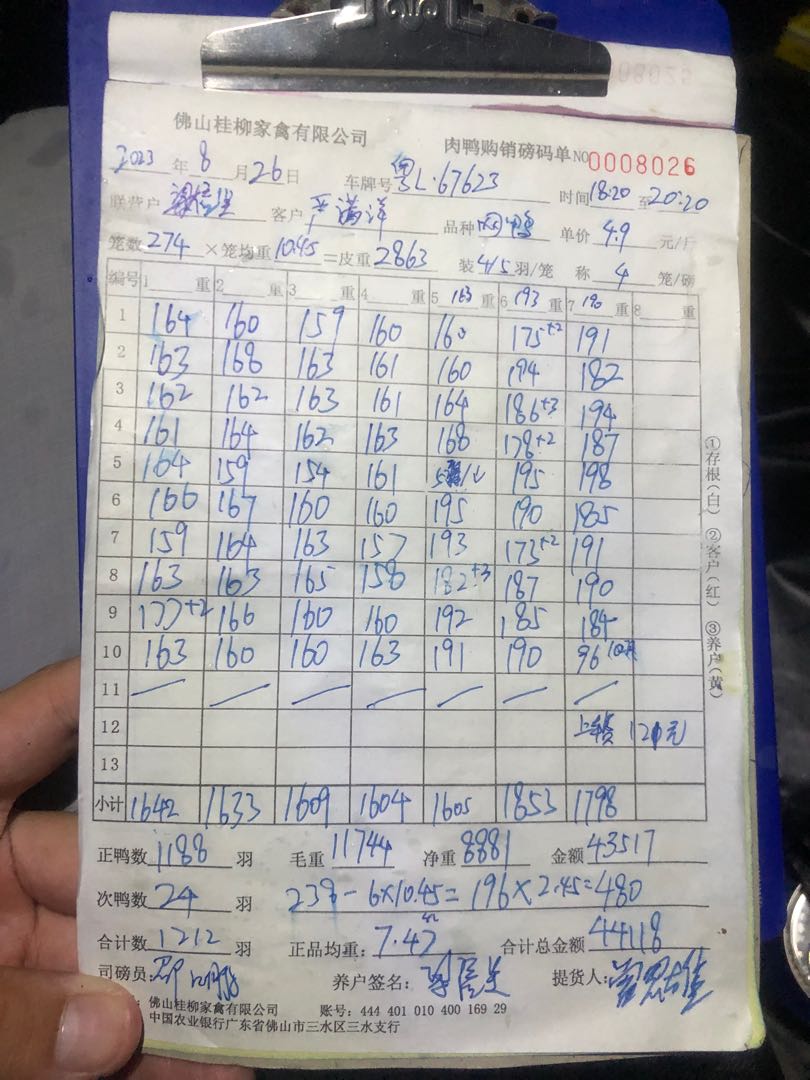 佛山桂柳家禽有限公司
肉鸭购销磅码单 NO 0008026
2023 年 8 月 26 日 车牌号 粤L·67623 时间 18:20 至 20:20
联营户 客户 严满洋 品种 单价 4.9 元/斤
笼数 274 ×笼均重 10.45 =皮重 2863 装 4/5 羽/笼 称 4 笼/磅
编号 1 重 2 重 3 重 4 重 5 163 重 6 193 重 7 190 重 8 重
1 164 160 159 160 160 175+2 191
2 163 168 163 161 160 194 182
3 162 162 163 161 164 186+3 194
4 161 164 162 163 168 178+2 187
5 164 159 154 161 195 198
6 166 167 160 160 195 190 185
7 159 164 163 157 193 173+2 191
8 163 163 165 158 182+3 187 190
9 177+2 166 160 160 192 185 184
10 163 160 160 163 191 190 96
11
12 上车费 121元
13
小计 1642 1633 1609 1604 1605 1853 1798
正鸭数 1188 羽 毛重 11744 净重 8881 金额 43517
次鸭数 24 羽 238-6×10.45=196×2.45=480
合计数 1212 羽 正品均重: 7.47 合计总金额 44118
司磅员: 养户签名: 提货人:
佛山桂柳家禽有限公司 账号: 444 401 010 400 169 29
中国农业银行广东省佛山市三水区三水支行
①存根(白) ②客户(红) ③养户(黄)